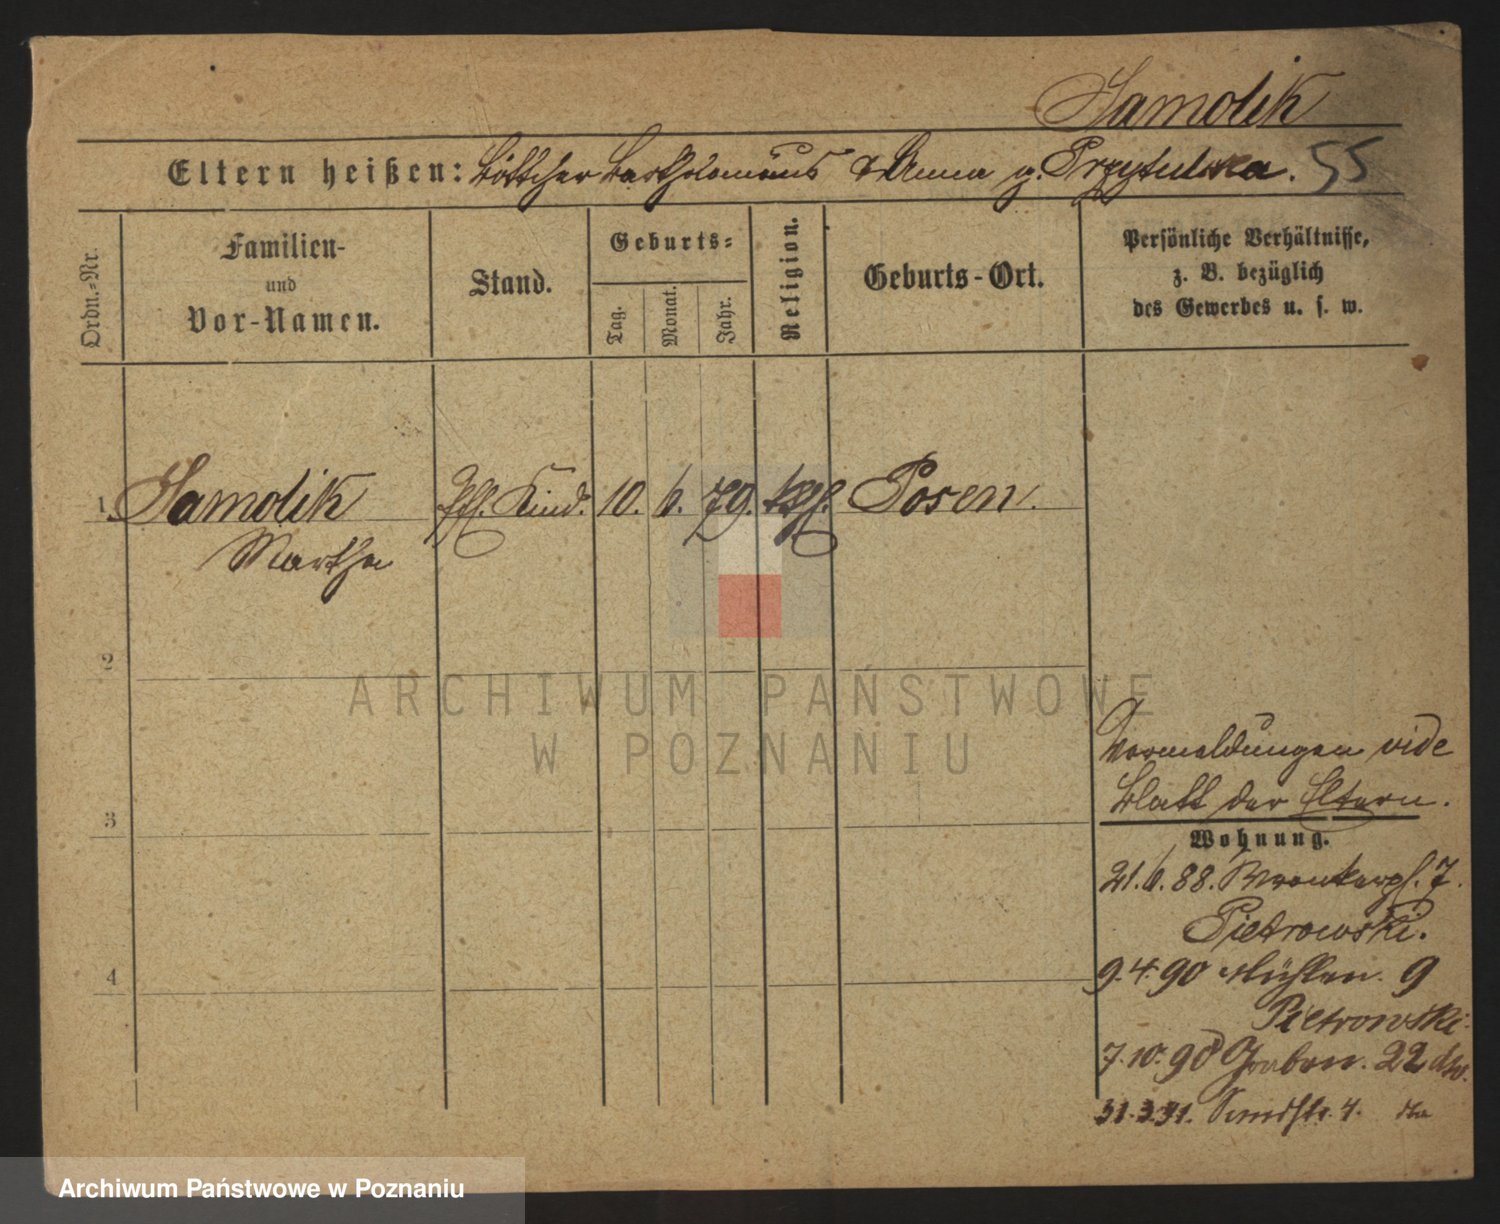 Samolik
Eltern heißen: Böttcher Bartholomäus & Anna g. Przytulska. 55
Ordn.-Nr.
Familien-
und
Vor-Namen.
Stand.
Geburts-
Tag.
Monat.
Jahr.
Religion.
Geburts-Ort.
Persönliche Verhältnisse,
z. B. bezüglich
des Gewerbes u. s. w.
1 Samolik Kind. 10. 6. 79. kth. Posen.
Martha
2
3
4
Vormeldungen vide
Blatt der Eltern.
Wohnung.
21.6.88. Bronkerpl. 7.
Pietrowski.
9.4.90 Mühlen. 9
Pietrowski.
7.10.90 Graben. 22
31.3.91. Sandstr. 4.
ARCHIWUM PAŃSTWOWE
W POZNANIU
Archiwum Państwowe w Poznaniu